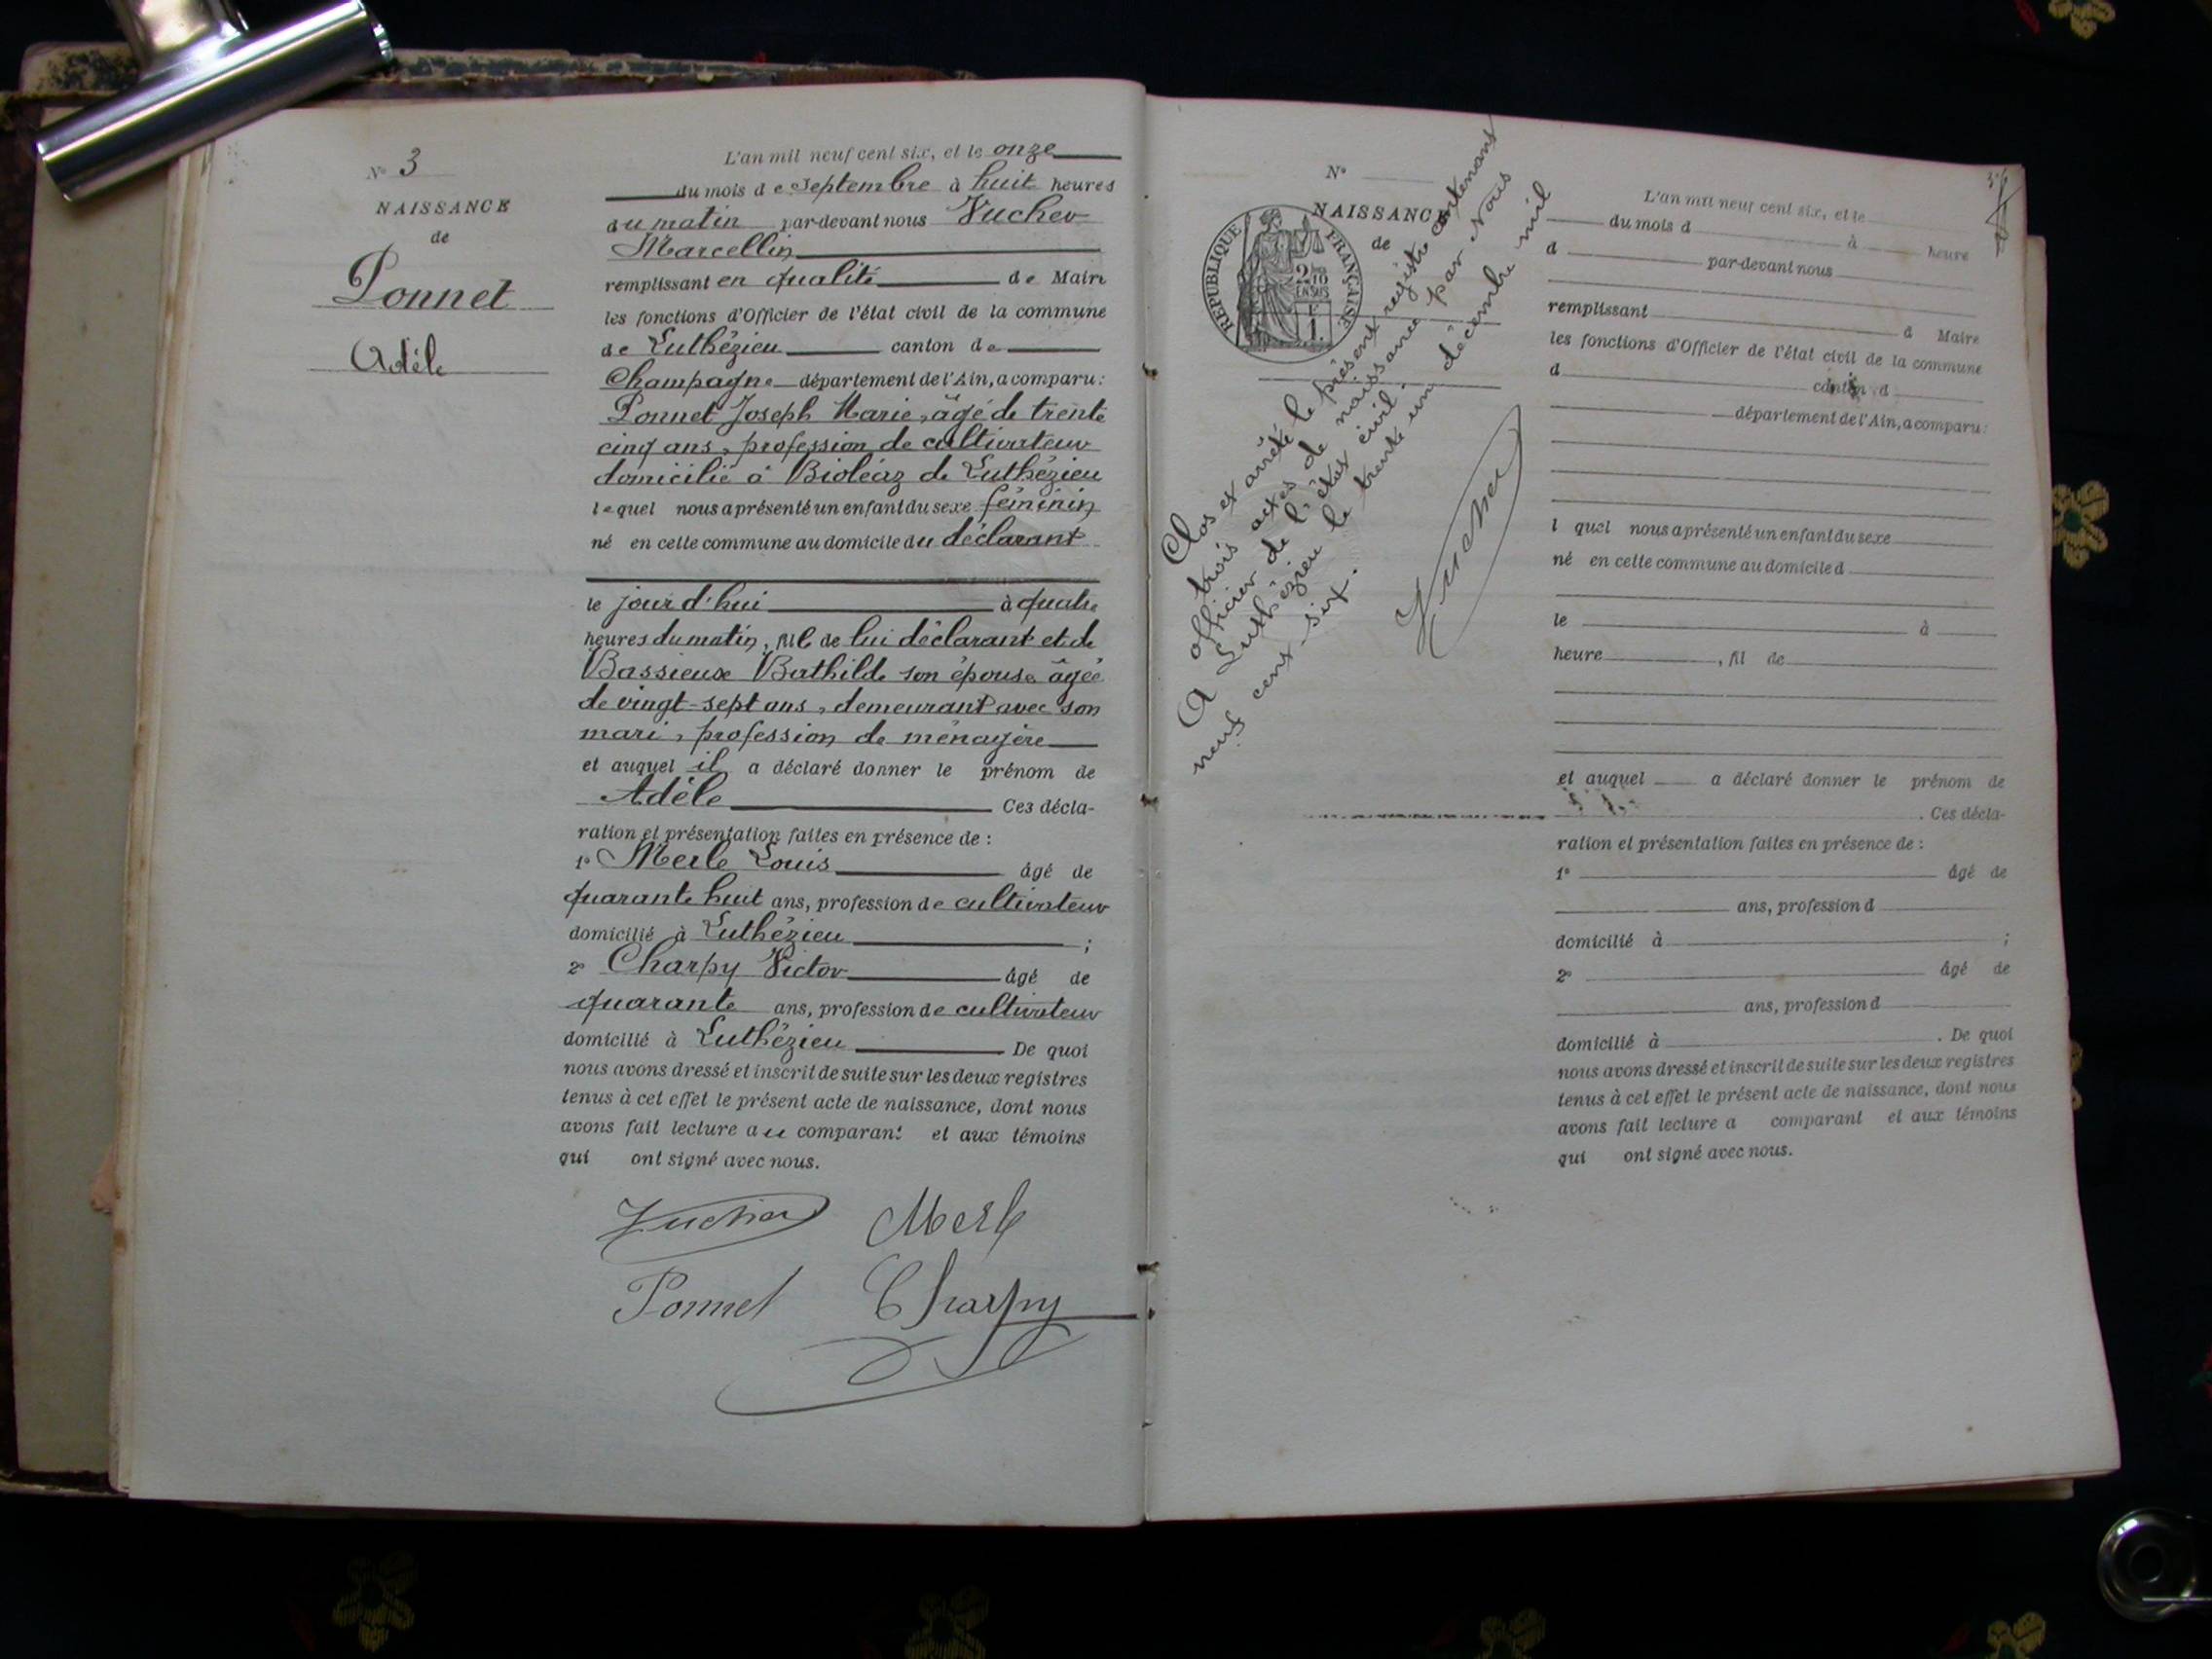 N° 3
NAISSANCE
de
Ponnet
Adèle
L'an mil neuf cent six, et le onze
du mois de Septembre à huit heures
du matin par-devant nous Vucher
Marcellin
remplissant en qualité de Maire
les fonctions d'Officier de l'état civil de la commune
de Luthézieu canton de
Champagne département de l'Ain, a comparu :
Ponnet Joseph Marie, âgé de trente
cinq ans, profession de cultivateur
domicilié à Bioléaz de Luthézieu
lequel nous a présenté un enfant du sexe féminin
né en cette commune au domicile du déclarant
le jour d'hui à quatre
heures du matin, fille de lui déclarant et de
Bassieux Bathilde son épouse âgée
de vingt-sept ans, demeurant avec son
mari, profession de ménagère
et auquel il a déclaré donner le prénom de
Adèle Ces décla-
ration et présentation faites en présence de :
1° Merle Louis âgé de
quarante huit ans, profession de cultivateur
domicilié à Luthézieu ;
2° Charpy Victor âgé de
quarante ans, profession de cultivateur
domicilié à Luthézieu De quoi
nous avons dressé et inscrit de suite sur les deux registres
tenus à cet effet le présent acte de naissance, dont nous
avons fait lecture au comparant et aux témoins
qui ont signé avec nous.
Vucher Merle
Ponnet Charpy
N°
NAISSANCE
de
RÉPUBLIQUE FRANÇAISE
2/10
EN SUS
1F
Clos et arrêté le présent registre contenant
trois actes de naissance par Nous
officier de l'état civil.
A Luthézieu le trente un décembre mil
neuf cent-six.
Vucher
L'an mil neuf cent six, et le
du mois d à heure
d par-devant nous
remplissant d Maire
les fonctions d'Officier de l'état civil de la commune
d canton d
département de l'Ain, a comparu :
l quel nous a présenté un enfant du sexe
né en cette commune au domicile d
le à
heure , fil de
et auquel a déclaré donner le prénom de
. Ces décla-
ration et présentation faites en présence de :
1° âgé de
ans, profession d
domicilié à ;
2° âgé de
ans, profession d
domicilié à . De quoi
nous avons dressé et inscrit de suite sur les deux registres
tenus à cet effet le présent acte de naissance, dont nous
avons fait lecture a comparant et aux témoins
qui ont signé avec nous.